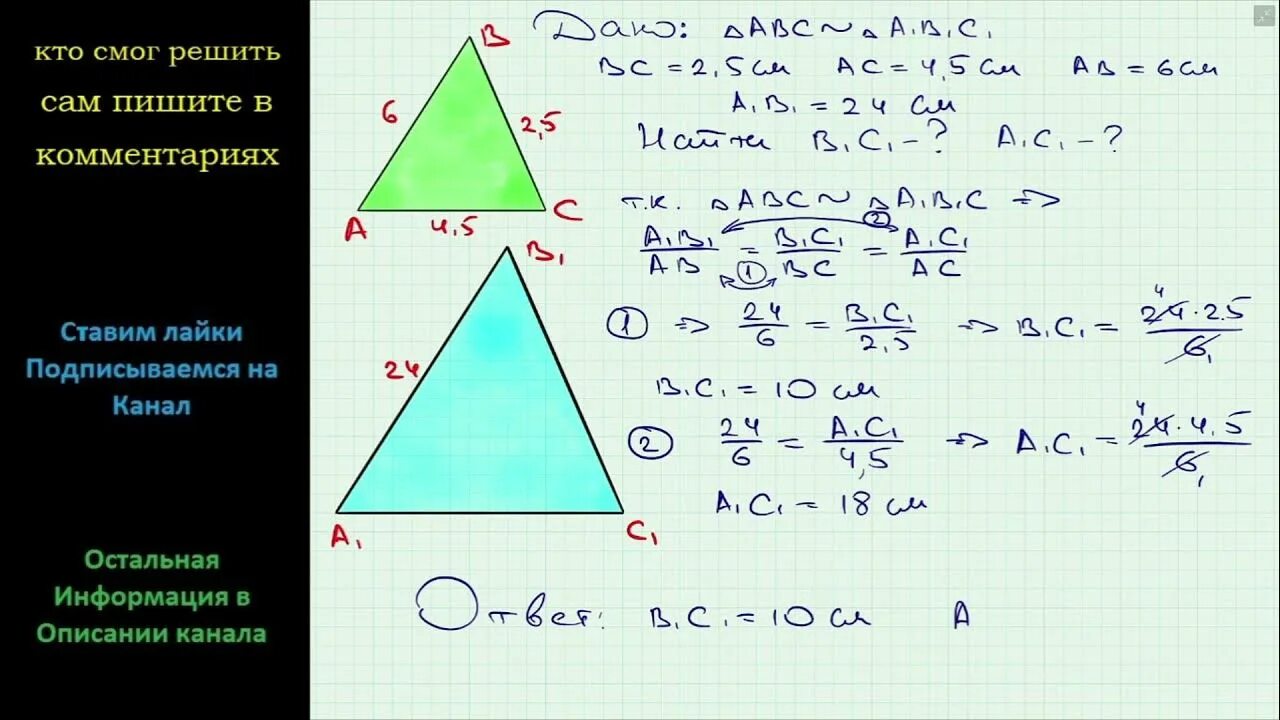 кто смог решить
сам пишите в
комментариях
Ставим лайки
Подписываемся на
Канал
Остальная
Информация в
Описании канала
B
6
2,5
A
4,5
C
B₁
24
A₁
C₁
Дано: △ABC ~ △A₁B₁C₁
BC = 2,5 см AC = 4,5 см AB = 6 см
A₁B₁ = 24 см
Найти B₁C₁ - ? A₁C₁ - ?
т.к. △ABC ~ △A₁B₁C =>
A₁B₁/AB = B₁C₁/BC = A₁C₁/AC
2
1
1 => 24/6 = B₁C₁/2,5 => B₁C₁ = 24 · 2.5/6
4
1
B₁C₁ = 10 см
2 24/6 = A₁C₁/4,5 => A₁C₁ = 24 · 4.5/6
4
1
A₁C₁ = 18 см
Ответ: B₁C₁ = 10 см A